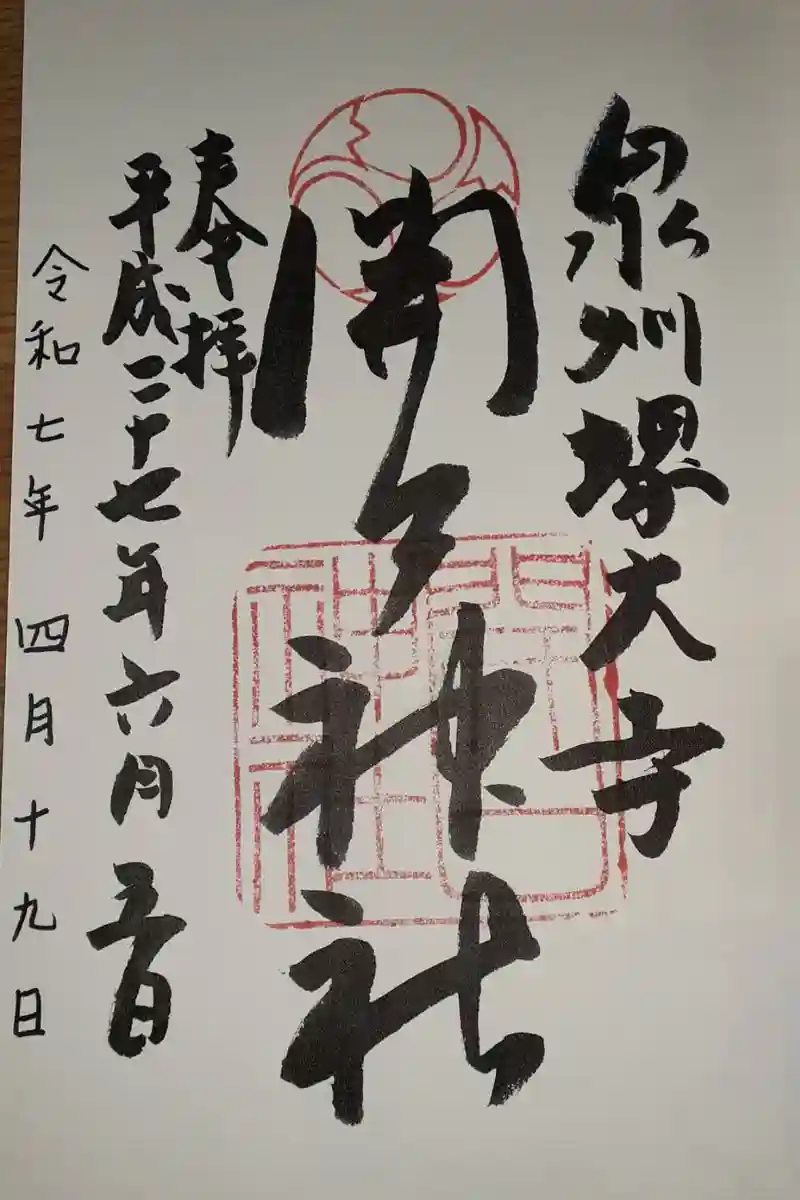 泉州堺大寺
開口神社
奉拝
平成二十七年六月五日
令和七年四月十九日